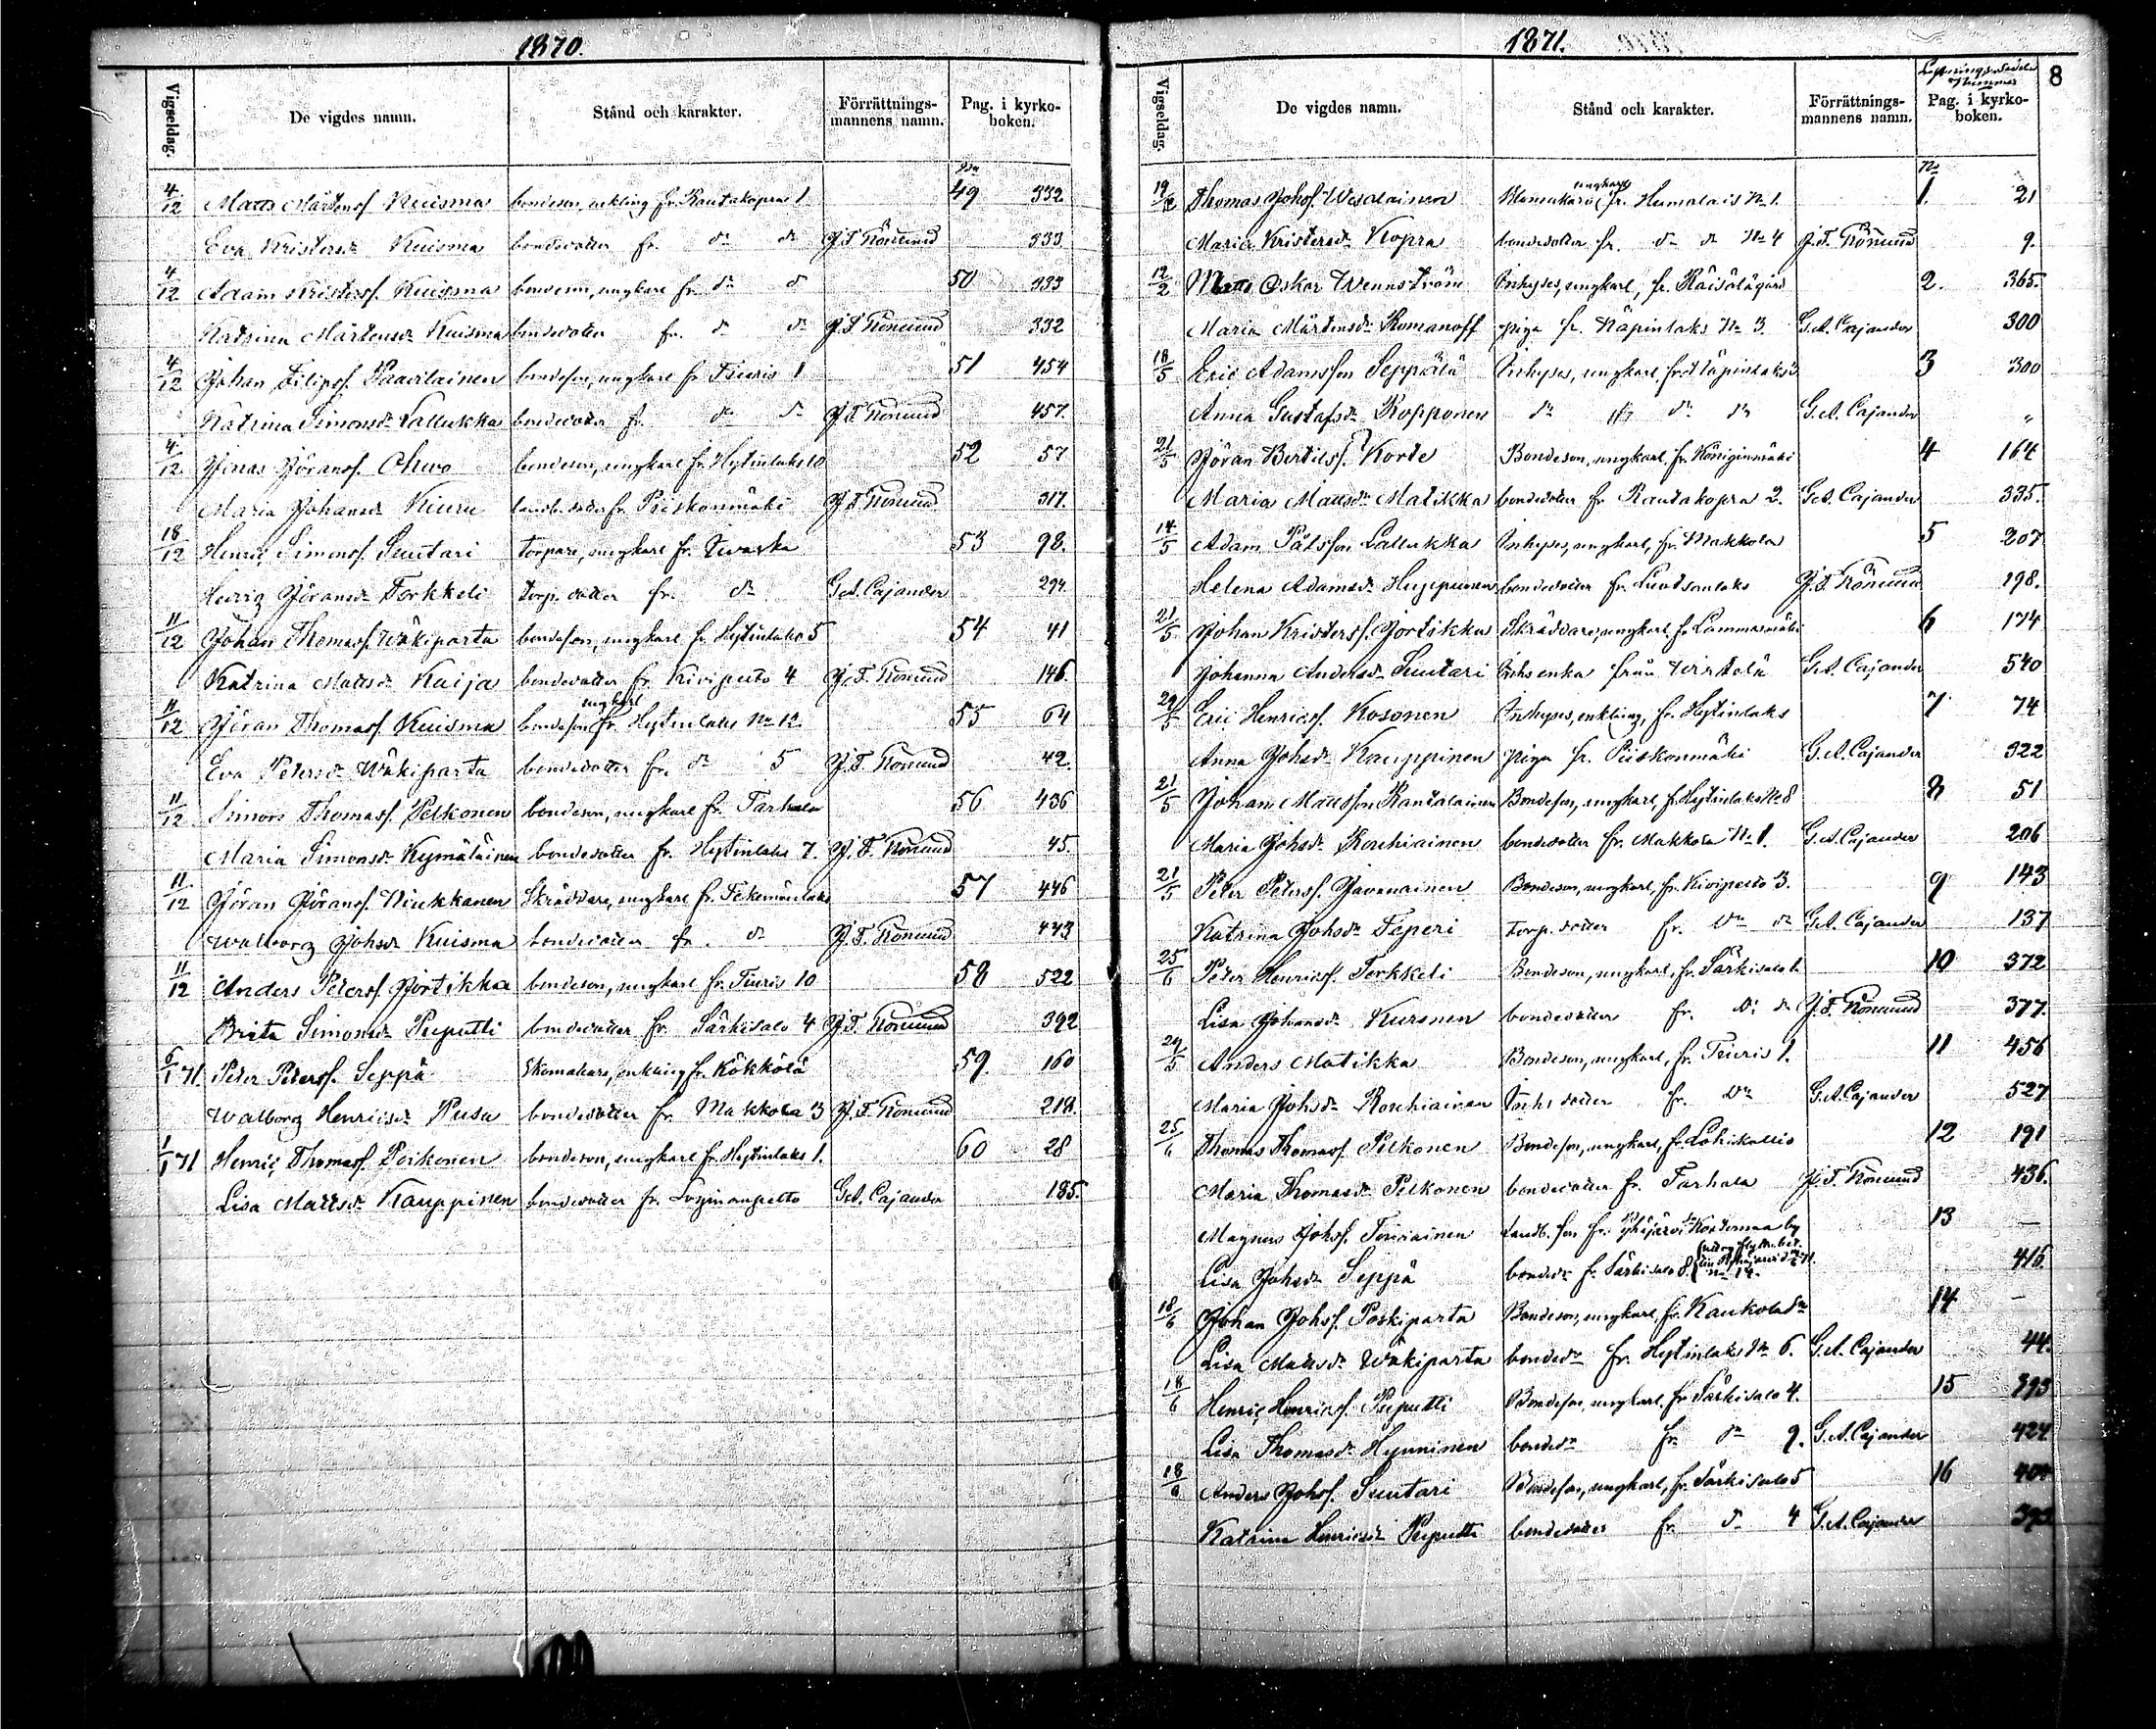 1870.
Vigseldag. De vigdes namn. Stånd och karakter. Förrättnings-mannens namn. Pag. i kyrko-boken.
4/12 Matts Mårtenss Kuisma bondeson, enkling fr Rautakopra 1 49 332
Eva Kristersdr Kuisma bondedotter fr. dr dr J.F. Rönnund 333
4/12 Adam Kristerss. Kuisma bondeson, ungkarl fr. dr d 50 333
Katrina Mårtensdr Kuisma bondedotter fr. dr dr J.F. Rönnund 332
4/12 Johan Filipss. Paavilainen bondeson, ungkarl fr Tiuris 1 51 454
Katrina Simonsdr Lallukka bondedotter fr. dr dr J.F. Rönnund 457.
4/12 Jonas Jöranss. Ohvo bondeson, ungkarl fr. Hytinlaks 10 52 57
Maria Johansdr Kiuru bondedotter fr Piiskonmäki J.F. Rönnund 317.
18/12 Henric Simonss. Suutari torpare, ungkarl fr. Ivaska 53 98.
Hedvig Jöransdr Torkkeli torp. dotter fr. dr G.A. Cajander 294.
11/12 Johan Thomass. Wäkiparta bondeson, ungkarl fr. Hytinlaks 5 54 41
Katrina Mattsdr Kaija bondedotter fr. Kivipelto 4 J.F. Rönnund 146.
11/12 Jöran Thomass. Kuisma bondeson ungkarl fr. Hytinlaks No 12. 55 64
Eva Petersdr Wäkiparta bondedotter fr. dr 5 J.F. Rönnund 42.
11/12 Simon Thomass. Pelkonen bondeson, ungkarl fr. Tarhala 56 436
Maria Simonsdr Kymäläinen bondedotter fr. Hytinlaks 7. J.F. Rönnund 45.
11/12 Jöran Jöranss. Niukkanen Skräddare, ungkarl fr. 57 446
Walborg Johsdr Kuisma bondedotter fr. dr J.F. Rönnund 443
11/12 Anders Peterss. Jortikka bondeson, ungkarl fr. Tiuris 10 58 522
Brita Simonsdr Puputti bondedotter fr. Särkisalo 4 J.F. Rönnund 392
6/1 71. Peter Peterss. Seppä Skomakare, enkling fr. Kökkölä 59. 160
Walborg Henricsdr Pusa bondedotter fr. Makkola 3 J.F. Rönnund 218.
1/1 71 Henric Thomass. Poikonen bondeson, ungkarl fr. Hytinlaks 1. 60 28
Lisa Mattsdr Kauppinen bondedotter fr. G.A. Cajander 185.
1871.
8
Vigseldag. De vigdes namn. Stånd och karakter. Förrättnings-mannens namn. Pag. i kyrko-boken.
Thomas Johss. Wesalainen ungkarl fr. Humalais No 1. No 1. 21
Maria Kristersdr Kopra bondedotter fr. dr dr No 4 J.F. Rönnund 9.
12/2 Matts Oskar Wennström Inhyses, ungkarl, fr. Räisälägård 2. 365.
Maria Mårtensdr Romanoff piga fr. Näpinlaks No 3. G.A. Cajander 300
18/5 Eric Adamsson Seppälä Inhyses, ungkarl fr. Näpinlaks 3 3 300
Anna Gustafsdr Kopponen dr dr dr G.A. Cajander "
21/5 Jöran Bertilss. Korte Bondeson, ungkarl, fr. Königinmäki 4 164
Maria Mattsdr Matikka bondedotter fr Rautakopra 2. G.A. Cajander 335.
14/5 Adam Pålsson Lallukka Inhyses, ungkarl, fr. Makkola 5 207
Helena Adamsdr Huppunen bondedotter fr. J.F. Rönnund 198.
21/5 Johan Kristerss. Jortikka Skräddare, ungkarl, fr Lammasmäki 6 174
Johanna Andersdr Suutari Inhs enka från Wirtelä G.A. Cajander 540
29/5 Eric Henricss. Kosonen Inhyses, enkling, fr. Hytinlaks 7 74
Anna Johsdr Kauppinen piga fr. Piiskonmäki G.A. Cajander 322
21/5 Johan Mattsson Rantalainen Bondeson, ungkarl, fr Hytinlaks No 8 8 51
Maria Johsdr Roschiainen bondedotter fr. Makkola No 1. G.A. Cajander 206
21/5 Peter Peterss. Javanainen Bondeson, ungkarl, fr. Kivipelto 3. 9 143
Katrina Johsdr Teperi torp. dotter fr. dr dr G.A. Cajander 137
25/6 Peter Henricss. Torkkeli Bondeson, ungkarl, fr. Särkisalo 10 372
Lisa Johansdr Kuronen bondedotter fr. dr dr J.F. Rönnund 377.
29/5 Anders Matikka Bondeson, ungkarl, fr. Tiuris 1. 11 456
Maria Johsdr Roschiainen Inhs dotter fr. dr G.A. Cajander 527
25/6 Thomas Thomass. Pelkonen Bondeson, ungkarl, fr. Lohikallio 12 191
Maria Thomasdr Pelkonen bondedotter fr. Tarhala J.F. Rönnund 436.
Magnus Johss. Toiviainen Landb. son fr. by 13 —
Lisa Johsdr Seppä bondedr fr. Särkisalo 8. 415.
18/6 Johan Johss. Poskiparta Bondeson, ungkarl, fr. Kaukola 14 —
Lisa Mattsdr Wäkiparta bondedr fr. Hytinlaks No 6. G.A. Cajander 44.
18/6 Henric Henricss. Puputti Bondeson, ungkarl, fr Särkisalo 4. 15 393
Lisa Thomasdr Hynninen bondedr fr. dr 9. G.A. Cajander 424
18/6 Anders Johss. Suutari Bondeson, ungkarl, fr. Särkisalo 5 16
Katrina Henricsdr Puputti bondedotter fr. dr 4 G.A. Cajander 393